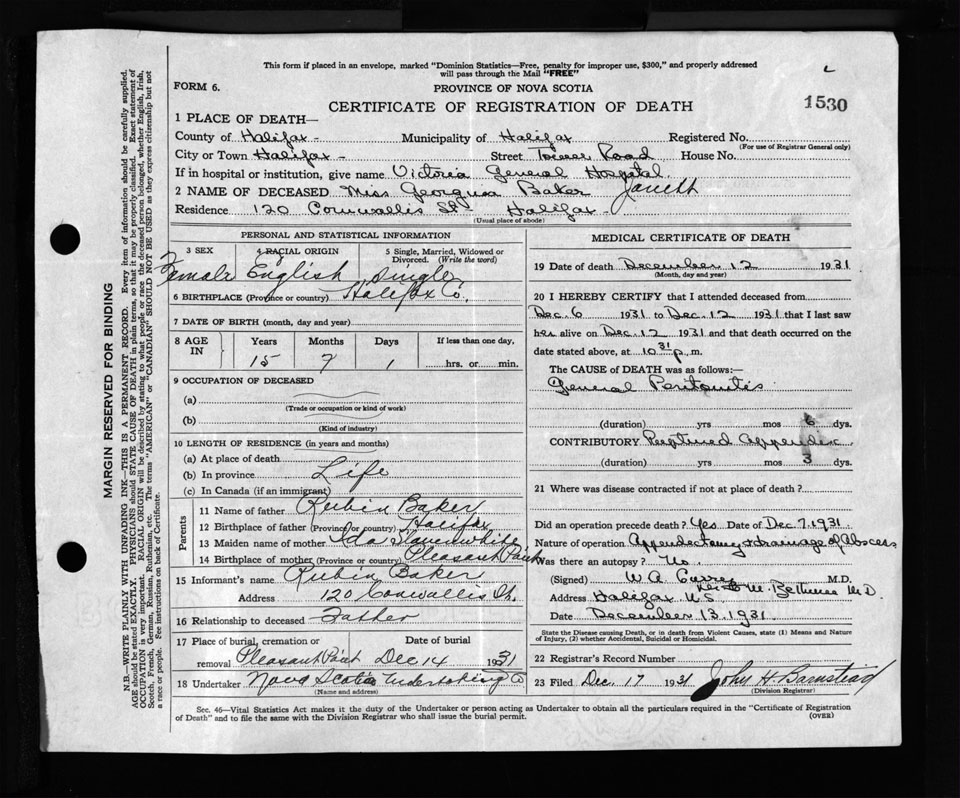 This form if placed in an envelope, marked "Dominion Statistics—Free, penalty for improper use, $300," and properly addressed
will pass through the Mail "FREE"
FORM 6.
PROVINCE OF NOVA SCOTIA
CERTIFICATE OF REGISTRATION OF DEATH
1530
1 PLACE OF DEATH—
County of Halifax - Municipality of Halifax Registered No.
(For use of Registrar General only)
City or Town Halifax - Street Tower Road House No.
If in hospital or institution, give name Victoria General Hospital
2 NAME OF DECEASED Miss Georgina Baker
Residence 120 Cornwallis St - Halifax -
(Usual place of abode)
PERSONAL AND STATISTICAL INFORMATION
3 SEX 4 RACIAL ORIGIN 5 Single, Married, Widowed or Divorced. (Write the word)
Female English Single
6 BIRTHPLACE (Province or country) Halifax Co.
7 DATE OF BIRTH (month, day and year)
8 AGE IN Years Months Days If less than one day,
15 7 1 hrs. or min.
9 OCCUPATION OF DECEASED
(a)
(Trade or occupation or kind of work)
(b)
(Kind of industry)
10 LENGTH OF RESIDENCE (in years and months)
(a) At place of death
(b) In province Life
(c) In Canada (if an immigrant)
Parents
11 Name of father Rubin Baker
12 Birthplace of father (Province or country) Halifax
13 Maiden name of mother Ida
14 Birthplace of mother (Province or country) Pleasant Point
15 Informant's name Rubin Baker
Address 120 Cornwallis St.
16 Relationship to deceased Father
17 Place of burial, cremation or removal Date of burial
Pleasant Point Dec 14 1931
18 Undertaker Nova Scotia Undertaking Co
(Name and address)
MEDICAL CERTIFICATE OF DEATH
19 Date of death December 12 1931
(Month, day and year)
20 I HEREBY CERTIFY that I attended deceased from
Dec. 6 1931 to Dec. 12 1931 that I last saw
her alive on Dec. 12 1931 and that death occurred on
date stated above, at 10 31 p. m.
The CAUSE of DEATH was as follows:—
General Peritonitis
(duration) yrs mos 6 dys.
CONTRIBUTORY Ruptured appendix
(duration) yrs mos 3 dys.
21 Where was disease contracted if not at place of death?
Did an operation precede death? Yes Date of Dec. 7. 1931.
Nature of operation Appendectomy & drainage of Abscess
Was there an autopsy? No.
(Signed) W. A. M.D.
Address Halifax N.S.
Date December 13. 1931.
State the Disease causing Death, or in death from Violent Causes, state (1) Means and Nature
of Injury, (2) whether Accidental, Suicidal or Homicidal.
22 Registrar's Record Number
23 Filed Dec 17 1931 John H Barnstead
(Division Registrar)
Sec. 46—Vital Statistics Act makes it the duty of the Undertaker or person acting as Undertaker to obtain all the particulars required in the "Certificate of Registration
of Death" and to file the same with the Division Registrar who shall issue the burial permit.
(OVER)
MARGIN RESERVED FOR BINDING
N.B.—WRITE PLAINLY WITH UNFADING INK—THIS IS A PERMANENT RECORD. Every item of information should be carefully supplied.
AGE should be stated EXACTLY. PHYSICIANS should STATE CAUSE OF DEATH in plain terms, so that it may be properly classified. Exact statement of
OCCUPATION is very important. RACIAL ORIGIN will be described by stating to what people or race the deceased person belonged, whether English, Irish,
Scotch, French, German, Russian, Ruthenian, etc. The terms "AMERICAN" or "CANADIAN" SHOULD NOT BE USED as they express citizenship but not
a race or people. See instructions on back of Certificate.